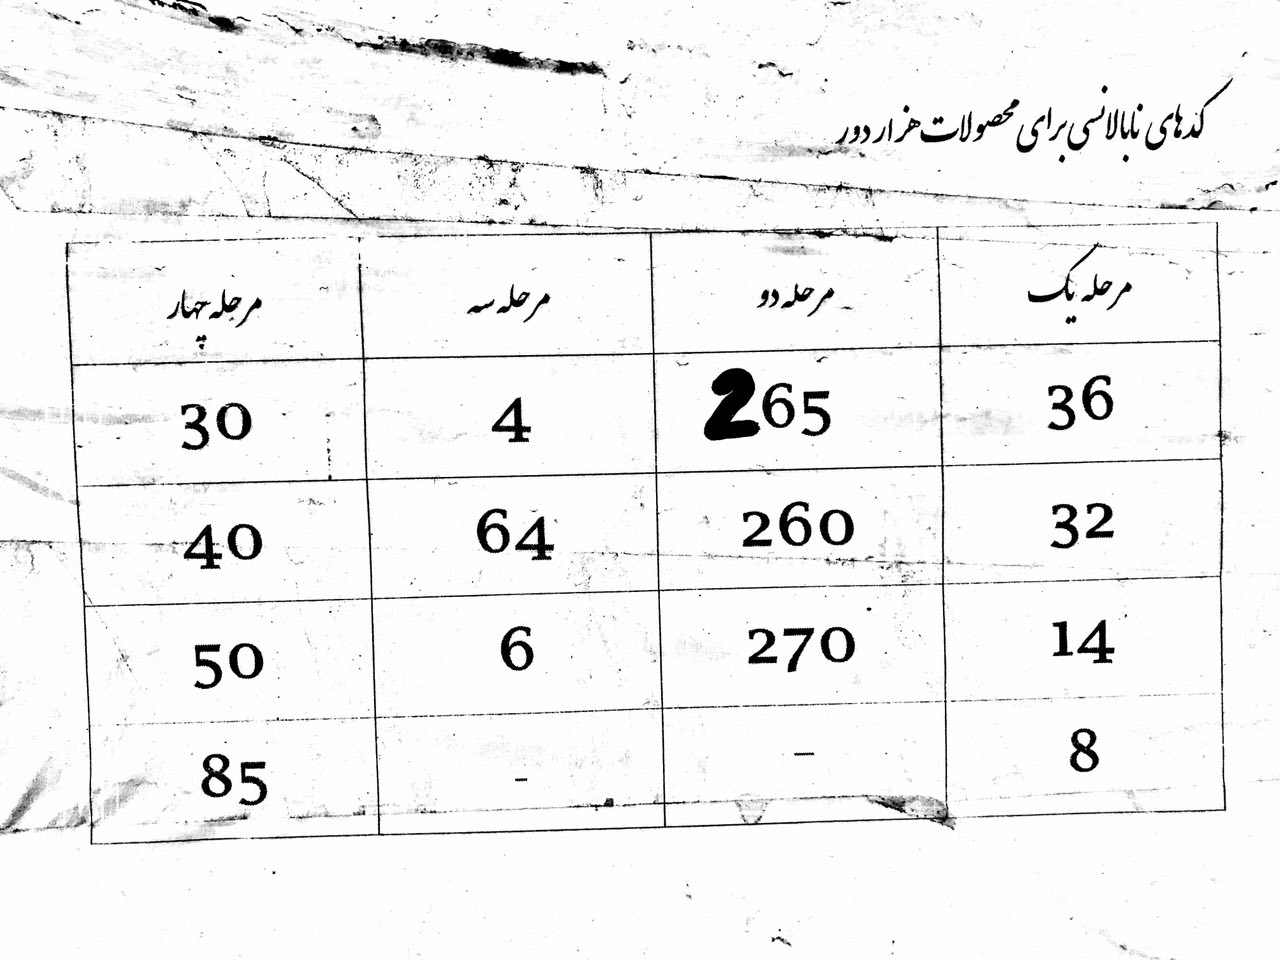 کدهای نابالانسی برای محصولات هزار دور
مرحله یک مرحله دو مرحله سه مرحله چهار
36 265 4 30
32 260 64 40
14 270 6 50
8 - - 85